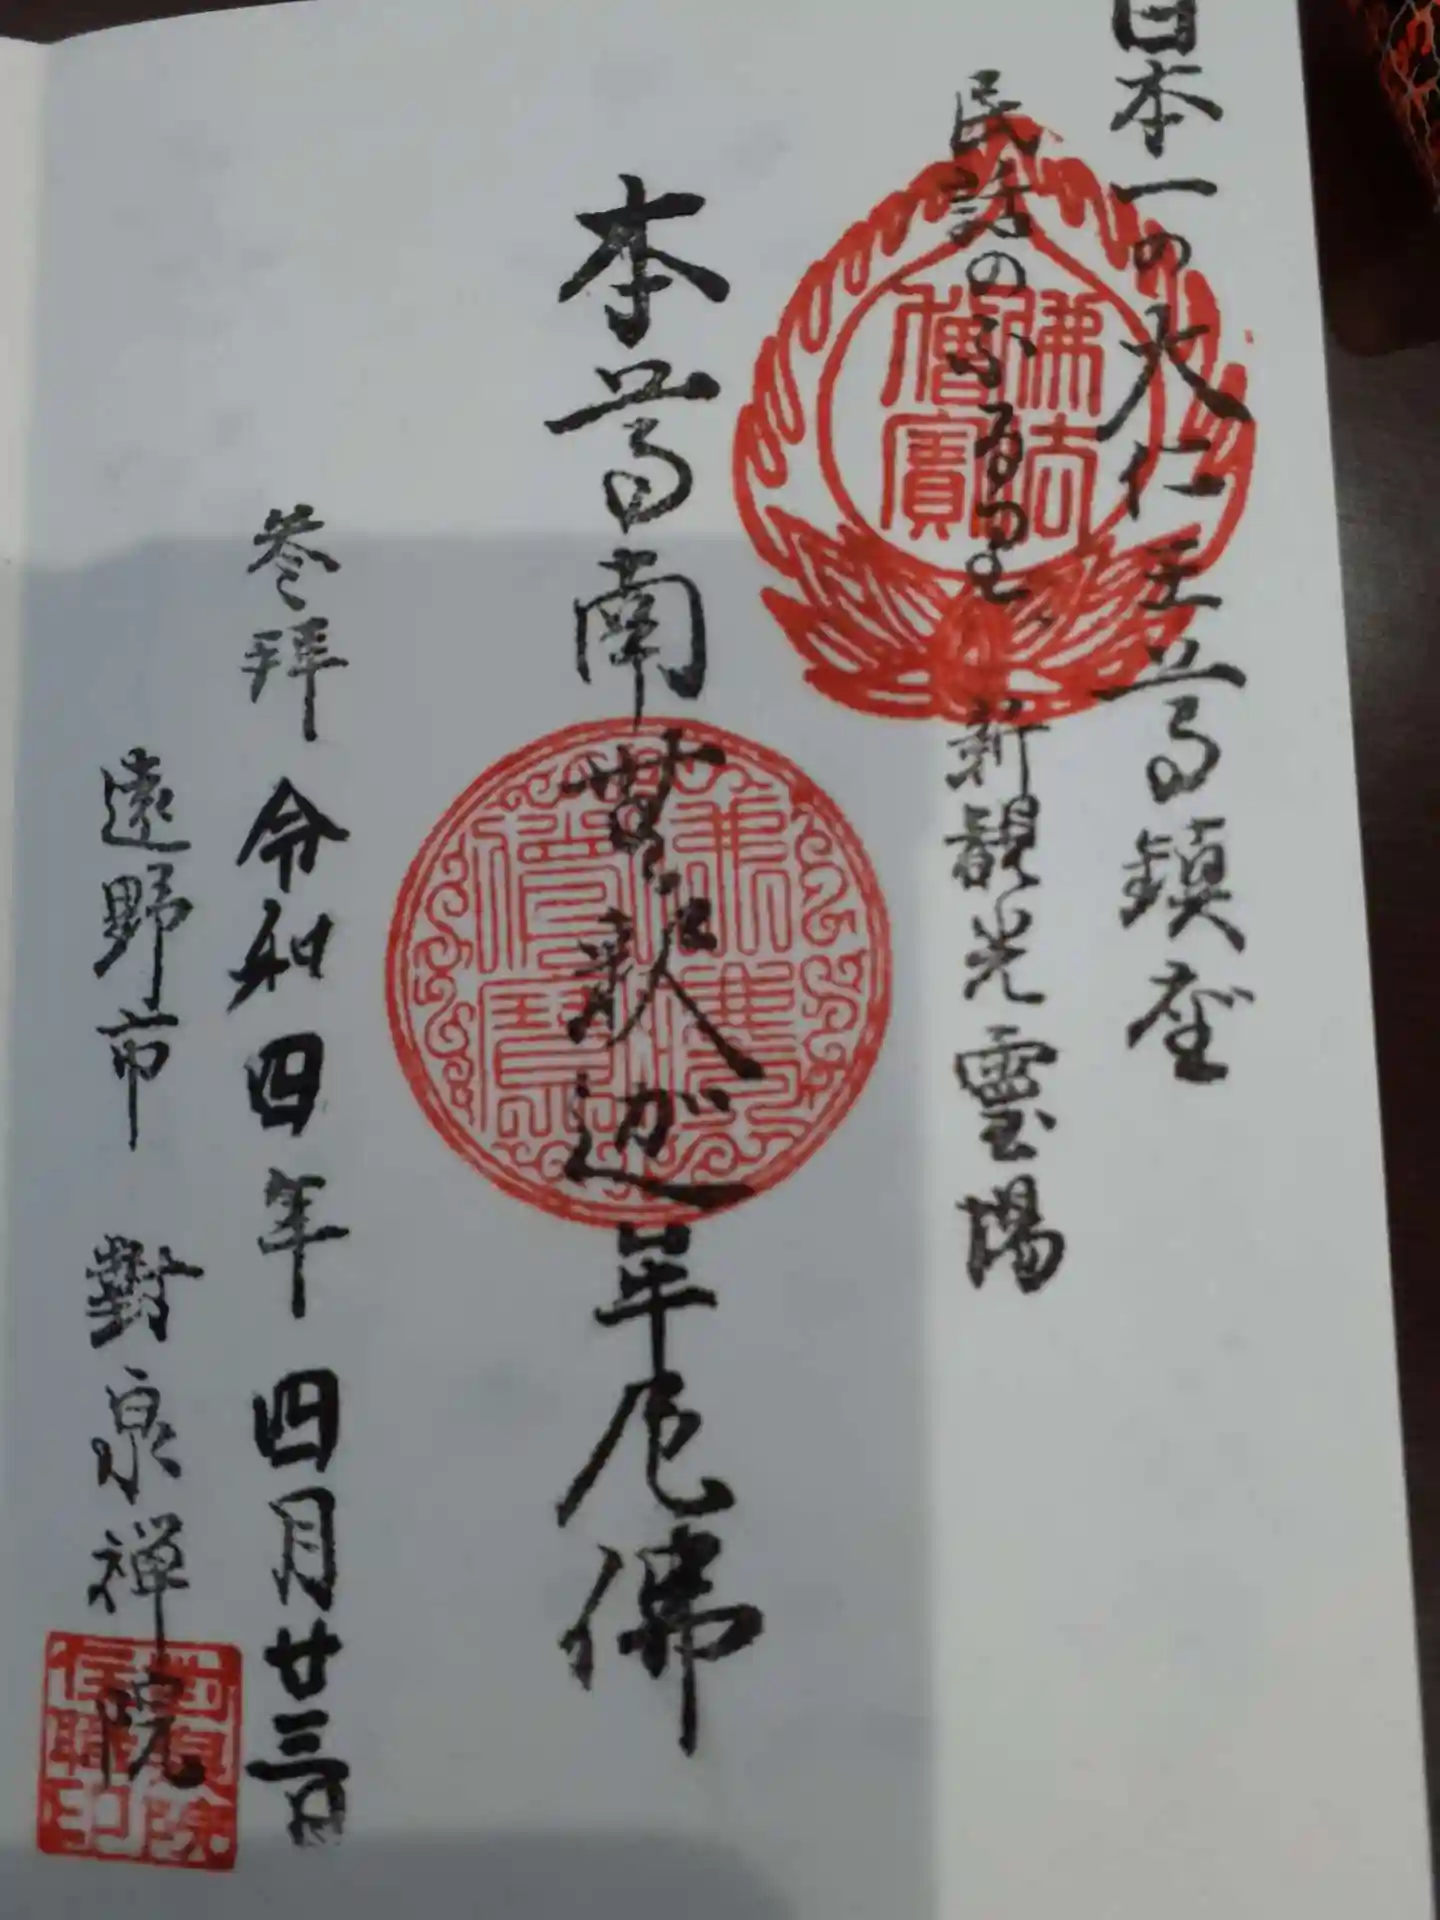 日本一の大仁王尊鎮座
民話のふる里 新観光霊場
佛法僧寶
本尊南無釈迦牟尼佛
参拜 令和四年 四月廿三日
遠野市 對泉禅院